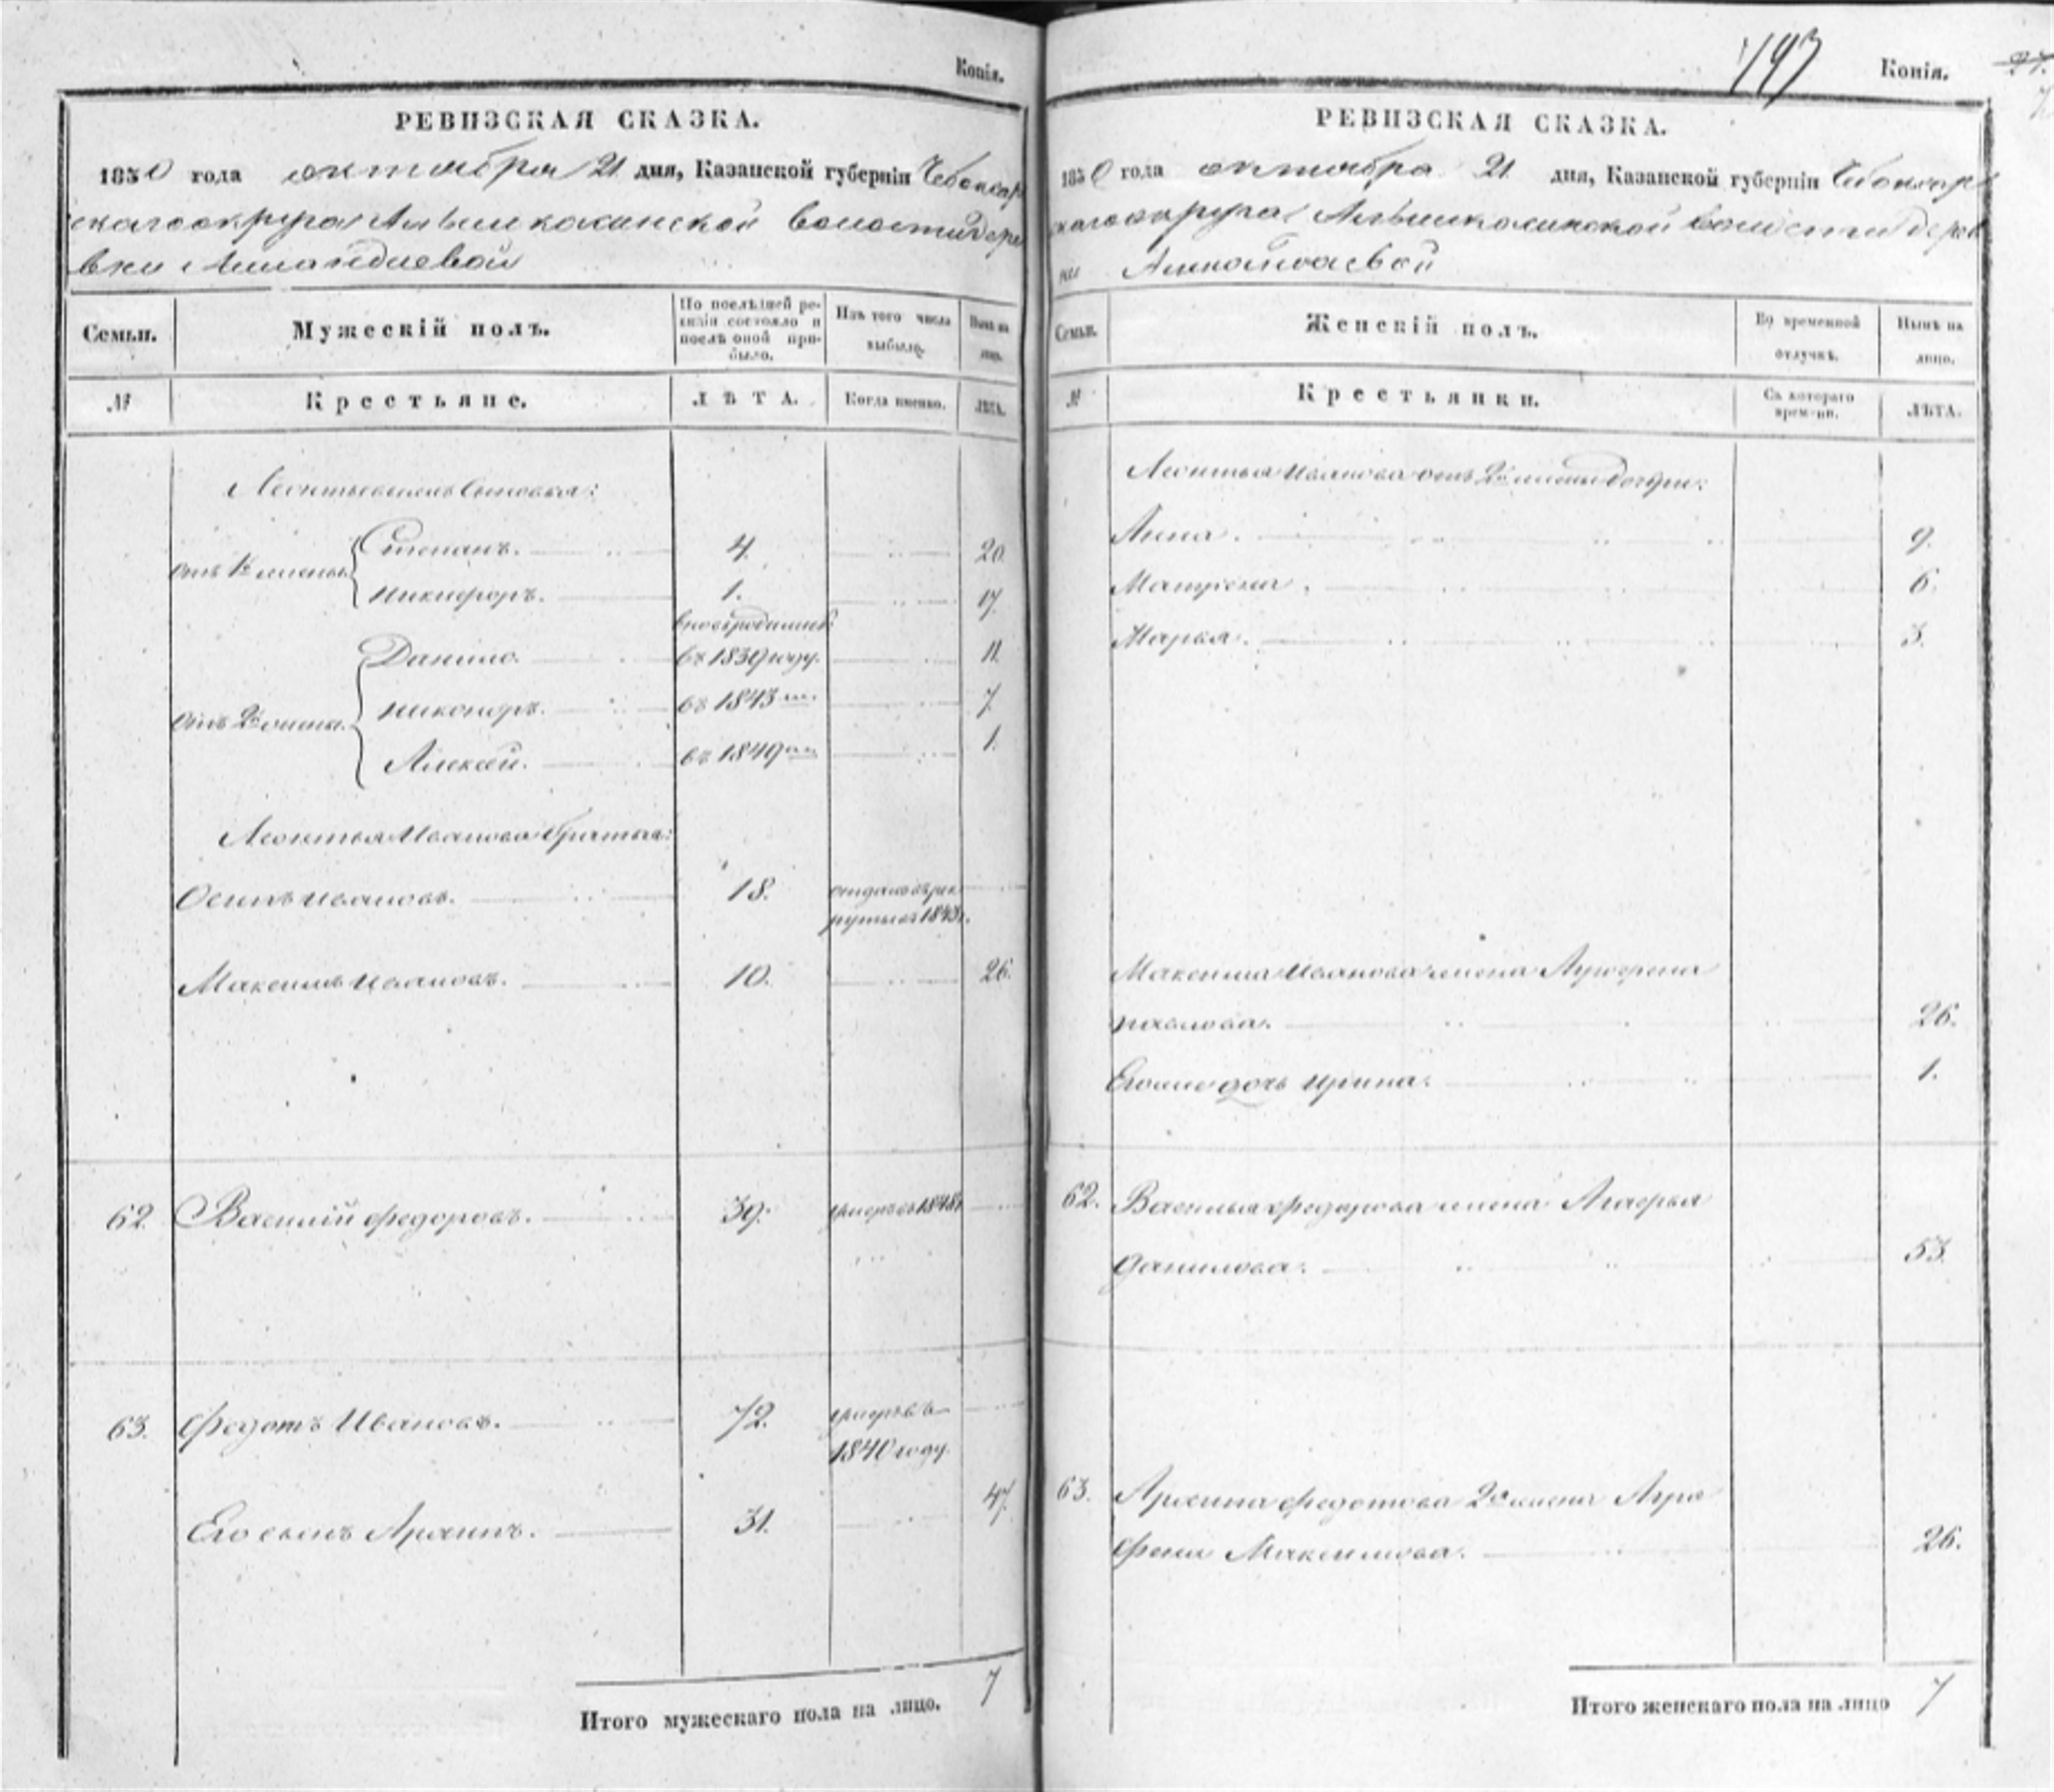 Копія.
РЕВИЗСКАЯ СКАЗКА.
1850 года октября 21 дня, Казанской губерніи Чебоксар
скаго округа волости дере
вки
Семьи.
Мужескій полъ.
По послѣдней ре-
визіи состояло и
послѣ оной при-
было.
Изъ того числа
выбыло.
Нынѣ на
лицо.
№
Крестьяне.
ЛѢТА.
Когда именно.
ЛѢТА.
Леонтьевы Сыновья:
отъ 1й жены
Степанъ. 4. 20.
Никифоръ. 1. 17.
вновьродивший
отъ 2й жены.
Данило. въ 1839 году. 11.
Никоноръ. въ 1843 7.
Алексѣй. въ 1849 1.
Леонтья Иванова братья:
Осипъ Ивановъ. 18. отданъ въ рек
руты въ 1843г.
Максимъ Ивановъ. 10. 26.
62. Василій Федоровъ. 39. умеръ въ 1848г
63. Федотъ Ивановъ. 72. умеръ въ
1840 году.
47.
Его сынъ 31.
Итого мужескаго пола на лицо. 7
197
Копія.
27.
РЕВИЗСКАЯ СКАЗКА.
1850 года октября 21 дня, Казанской губерніи Чебоксар
скаго округа волости дерев
ни
Семьи.
Женскій полъ.
Во временной
отлучкѣ.
Нынѣ на
лицо.
№
Крестьянки.
Съ котораго
времени.
ЛѢТА.
Леонтья Иванова отъ 2й жены дочери:
Анна. 9.
Матрена. 6.
Марья. 3.
Максима Иванова жена
Павлова. 26.
Его же дочь Ирина. 1.
62. Василья Федорова жена Агафья
Данилова. 53.
63. Федотова 2я жена Агра
фена Максимова. 26.
Итого женскаго пола на лицо 7